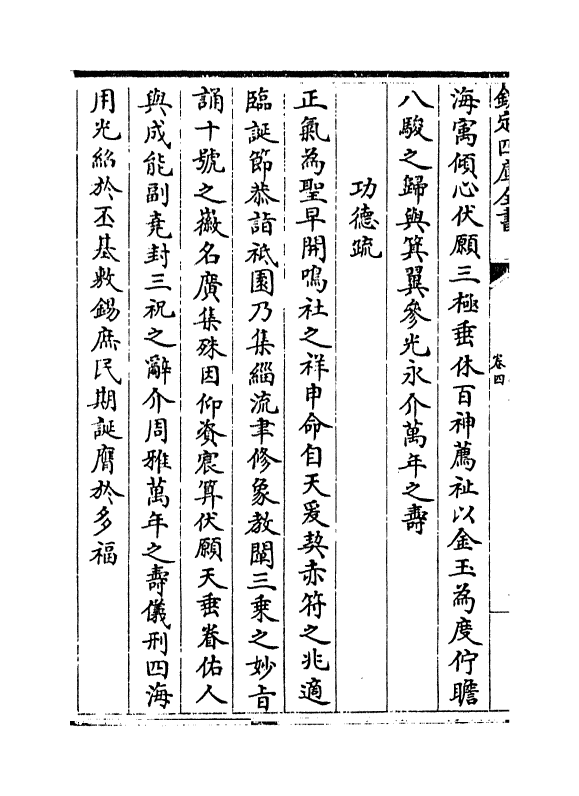 欽定四庫全書
卷四
海寓傾心伏願三極垂休百神薦祉以金玉為度佇瞻
八駿之歸與箕翼參光永介萬年之壽
功德疏
正氣為聖早開鳴社之祥申命自天爰契赤符之兆適
臨誕節恭詣祇園乃集緇流聿修象教闡三乗之妙㫖
誦十號之嶶名廣集殊因仰資宸算伏願天垂眷佑人
與成能副堯封三祝之辭介周雅萬年之壽儀刑四海
用光紹於丕基敷錫庶民期誕膺於多福